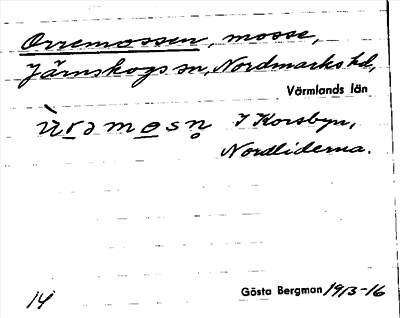 Orremossen, mosse,
Järnskogs sn, Nordmarks hd,
Värmlands län
ùrəmosn̥ I Korsbyn,
Nordliderna.
14 Gösta Bergman 1913-16